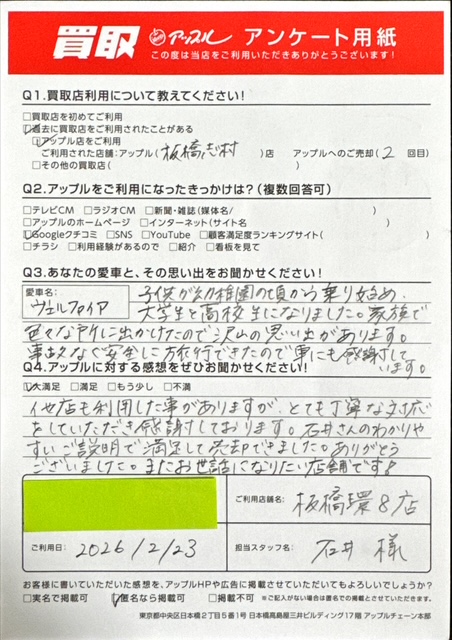 買取 アップル アンケート用紙
この度は当店をご利用いただきありがとうございます!
Q1.買取店利用について教えてください!
□買取店を初めてご利用
☑過去に買取店をご利用されたことがある
☑アップル店をご利用
ご利用された店舗:アップル(板橋志村)店 アップルへのご売却(2 回目)
□その他の買取店( )
Q2.アップルをご利用になったきっかけは?(複数回答可)
□テレビCM □ラジオCM □新聞・雑誌(媒体名/ )
□アップルのホームページ □インターネット(サイト名 )
☑Googleクチコミ □SNS □YouTube □顧客満足度ランキングサイト( )
□チラシ □利用経験があるので □紹介 □看板を見て
Q3.あなたの愛車と、その思い出をお聞かせください!
愛車名:
ヴェルファイア
子供が幼稚園の頃から乗り始め、
大学生と高校生になりました。家族で
色々な所に出かけたので沢山の思い出があります。
事故なく安全に旅行できたので車にも感謝して
います。
Q4.アップルに対する感想をぜひお聞かせください!
☑大満足 □満足 □もう少し □不満
他店も利用した事がありますが、とても丁寧な対応
をしていただき感謝しております。石井さんのわかりや
すいご説明で満足して売却できました。ありがとう
ございました。またお世話になりたい店舗です!
ご利用店舗名:
板橋環8店
ご利用日: 2026/2/23
担当スタッフ名: 石井 様
お客様に書いていただいた感想を、アップルHPや広告に掲載させていただいてもよろしいでしょうか?
□実名で掲載可 ☑匿名なら掲載可 □掲載不可 ※ご記入がない場合は匿名での掲載とさせていただきます。
東京都中央区日本橋2丁目5番1号 日本橋髙島屋三井ビルディング17階 アップルチェーン本部